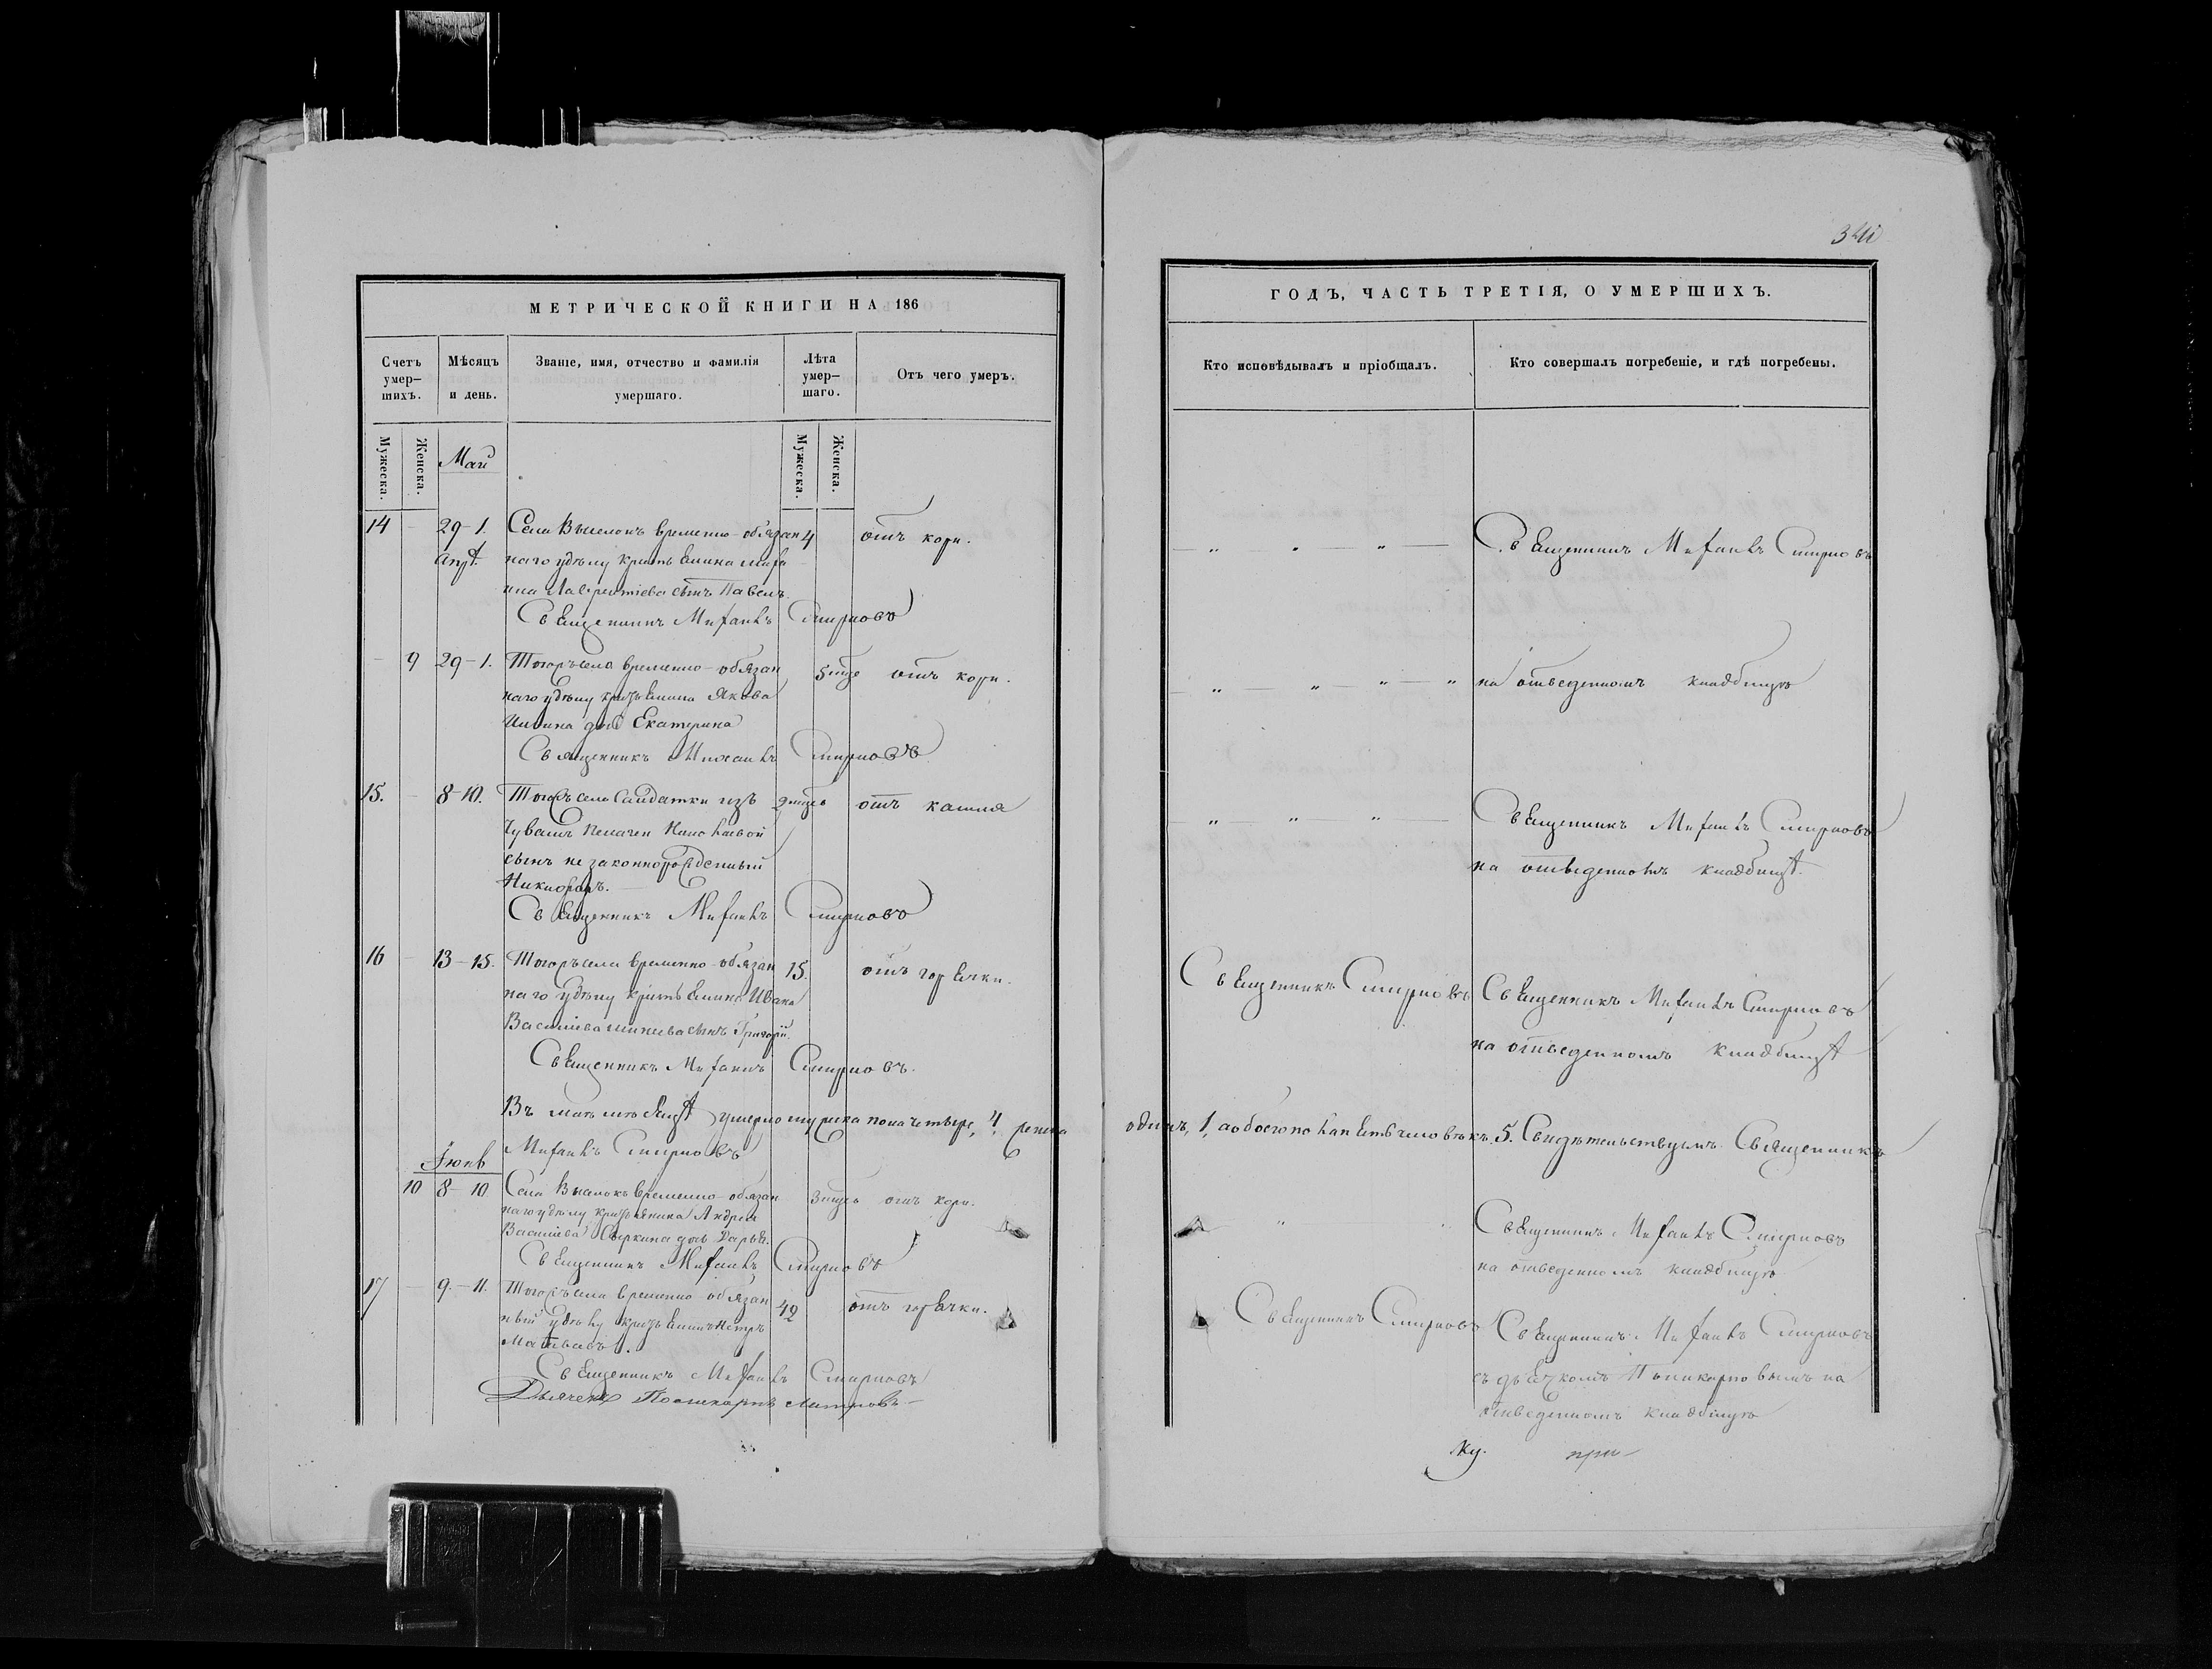 341
МЕТРИЧЕСКОЙ КНИГИ НА 186
ГОДЪ, ЧАСТЬ ТРЕТІЯ, О УМЕРШИХЪ.
Счетъ умер-шихъ.
Мѣсяцъ и день.
Званіе, имя, отчество и фамилія умершаго.
Лѣта умер-шаго.
Отъ чего умеръ.
Кто исповѣдывалъ и пріобщалъ.
Кто совершалъ погребеніе, и гдѣ погребены.
Мужеска.
Женска.
Май
Мужеска.
Женска.
14 29-1. Села Выселокъ временно-обязан 4 отъ кори.
Апр.
наго удѣлу крестьянина
Лаврентіева сынъ Павелъ.
Священникъ Михаилъ Смирновъ
Священникъ Михаилъ Смирновъ
9 29-1. Тогожъ села временно-обязан отъ кори.
наго удѣлу крестьянина Якова
дочь Екатерина
Священникъ Михаилъ Смирновъ
на отведенномъ кладбищѣ
15. 8-10. Тогожъ села солдатки изъ отъ кашля
чувашъ
сынъ незаконнорожденный
Никифоръ.
Священникъ Михаилъ Смирновъ
Священникъ Михаилъ Смирновъ
на отведенномъ кладбищѣ.
16 13-15. Тогожъ села временно-обязан 15. отъ горячки.
наго удѣлу крестьянина Ивана
Васильева сынъ Григорій.
Священникъ Михаилъ Смирновъ.
Священникъ Смирновъ
Священникъ Михаилъ Смирновъ
на отведенномъ кладбищѣ
Въ маѣ мѣсяцѣ умерло мужеска пола четыре, 4, женска
одинъ, 1, а обоего пола пять человѣкъ. 5. Свидѣтельствуемъ Священникъ
Михаилъ Смирновъ
Іюнь
10 8-10 Села Выселокъ временно-обязан отъ кори.
наго удѣлу крестьянина Андрея
Васильева дочь Дарья.
Священникъ Михаилъ Смирновъ
Священникъ Михаилъ Смирновъ
на отведенномъ кладбищѣ
17 9.-11. Тогожъ села временно обязан 42 отъ горячки.
ный удѣлу крестьянинъ Петръ
Матвѣевъ.
Священникъ Михаилъ Смирновъ
Священникъ Смирновъ
Священникъ Михаилъ Смирновъ
съ дьячкомъ на
отведенномъ кладбищѣ